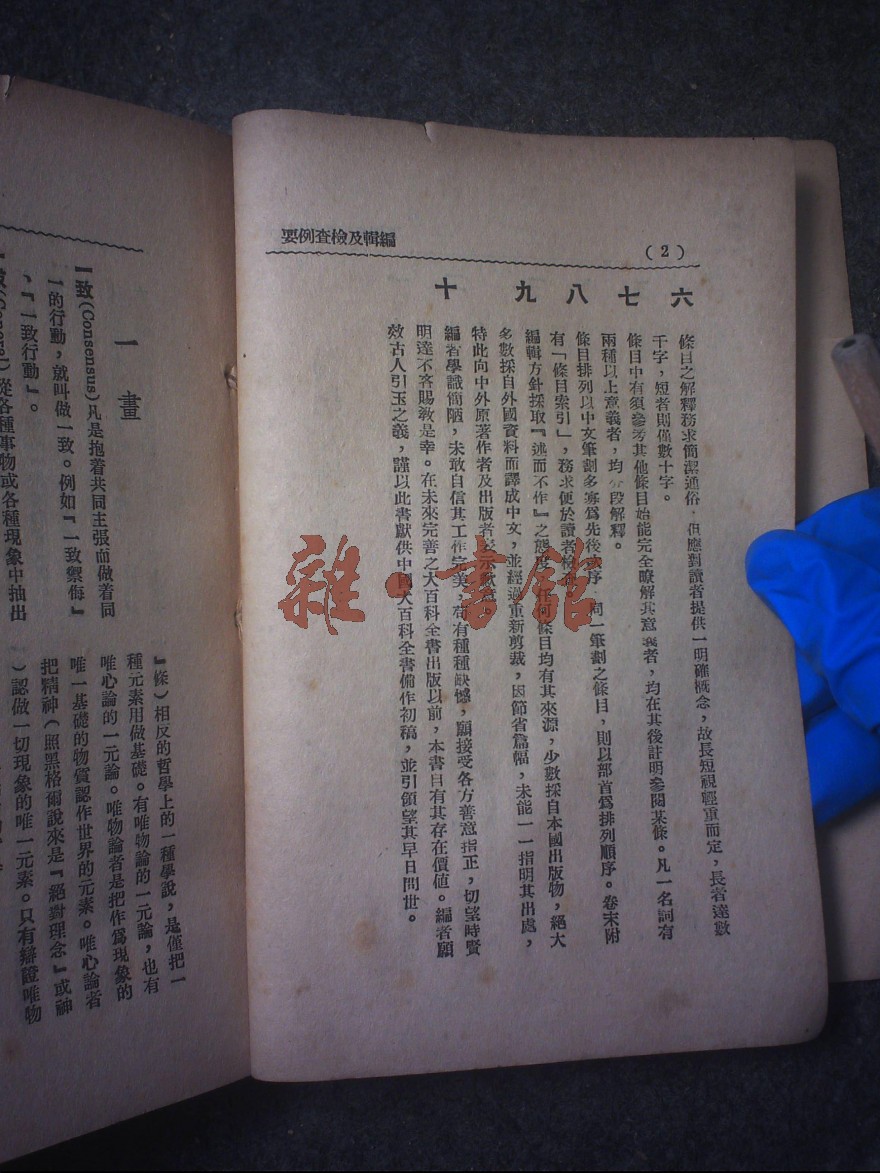 (2)
編輯及檢查例要
六
條目之解釋務求簡潔通俗,但應對讀者提供一明確概念,故長短視輕重而定,長者達數
千字,短者則僅數十字。
七
條目中有須參考其他條目始能完全瞭解其意義者,均在其後註明參閱某條。凡一名詞有
兩種以上意義者,均分段解釋。
八
條目排列以中文筆劃多寡爲先後次序,同一筆劃之條目,則以部首爲排列順序。卷末附
有「條目索引」,務求便於讀者檢
九
編輯方針採取『述而不作』之態度,任何條目均有其來源,少數採自本國出版物,絕大
多數採自外國資料而譯成中文,並經過重新剪裁,因節省篇幅,未能一一指明其出處,
特此向中外原著作者及出版者表示歉意。
十
編者學識簡陋,未敢自信其工作完美,苟有種種缺憾,願接受各方善意指正,切望時賢
明達不吝賜教是幸。在未來完善之大百科全書出版以前,本書自有其存在價值。編者願
效古人引玉之義,謹以此書獻供中國大百科全書備作初稿,並引領望其早日問世。
雜·書館
一畫
一致(Consensus)凡是抱着共同主張而做着同
一的行動,就叫做一致。例如『一致禦侮』
、『一致行動』。
從各種事物或各種現象中抽出
』條)相反的哲學上的一種學說,是僅把一
種元素用做基礎。有唯物論的一元論,也有
唯心論的一元論。唯物論者是把作爲現象的
唯一基礎的物質認作世界的元素。唯心論者
把精神(照黑格爾說來是『絕對理念』或神
)認做一切現象的唯一元素。只有辯證唯物